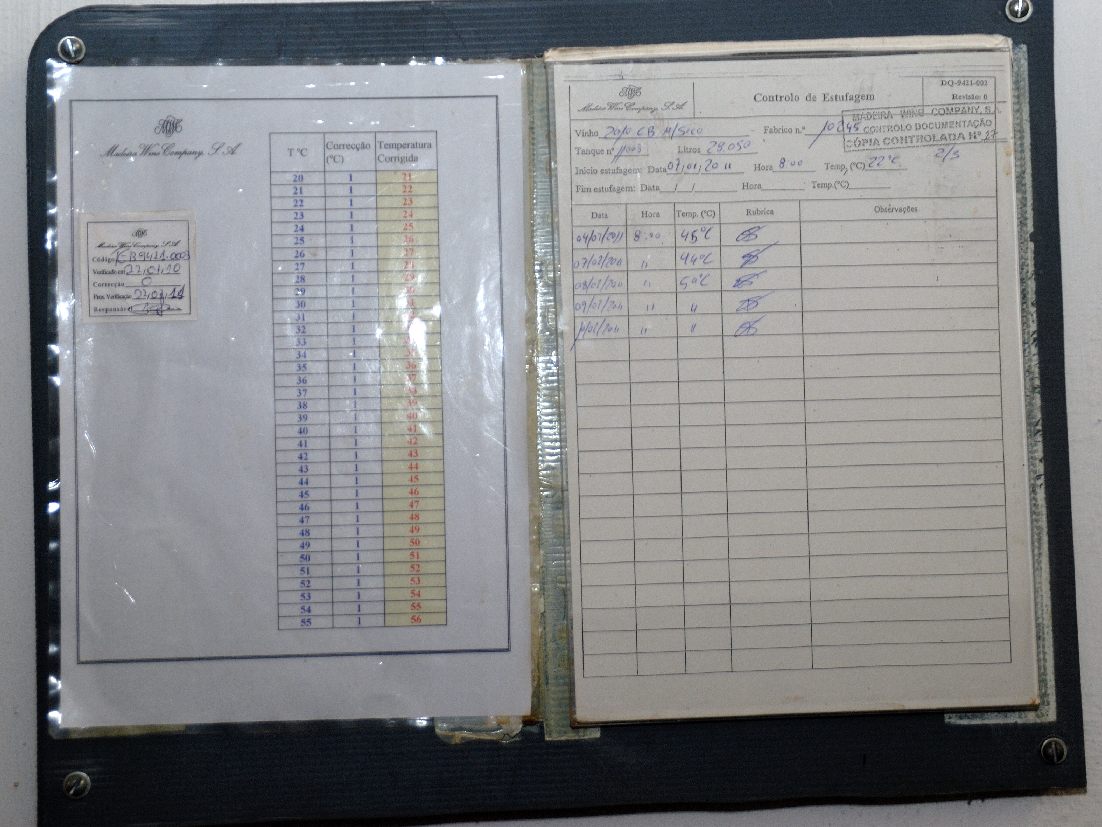 Madeira Wine Company, S. A.
Madeira Wine Company, S. A.
Código
Verificado em 22,01,10
Correcção 0
Próx. Verificação 22,01,11
Responsável
T ºC Correcção (ºC) Temperatura Corrigida
20 1 21
21 1 22
22 1 23
23 1 24
24 1 25
25 1 26
26 1 27
27 1 28
28 1 29
29 1 30
30 1 31
31 1 32
32 1 33
33 1 34
34 1 35
35 1 36
36 1 37
37 1 38
38 1 39
39 1 40
40 1 41
41 1 42
42 1 43
43 1 44
44 1 45
45 1 46
46 1 47
47 1 48
48 1 49
49 1 50
50 1 51
51 1 52
52 1 53
53 1 54
54 1 55
55 1 56
Madeira Wine Company, S. A.
Controlo de Estufagem
DQ-9421-002
Revisão: 0
MADEIRA WINE COMPANY, S.A.
CONTROLO DOCUMENTAÇÃO
CÓPIA CONTROLADA Nº 27
Vinho 2010 CB M/Seco Fabrico n.º 10245
Tanque nº 11003 Litros 28.050 2/3
Inicio estufagem: Data 07,01,2011 Hora 8:00 Temp. (ºC) 22ºC
Fim estufagem: Data / / Hora Temp.(ºC)
Data Hora Temp. (ºC) Rubrica Observações
8:00 45ºC
07/02/2011 " 44ºC
08/02/2011 " 50ºC
09/02/2011 " "
" "